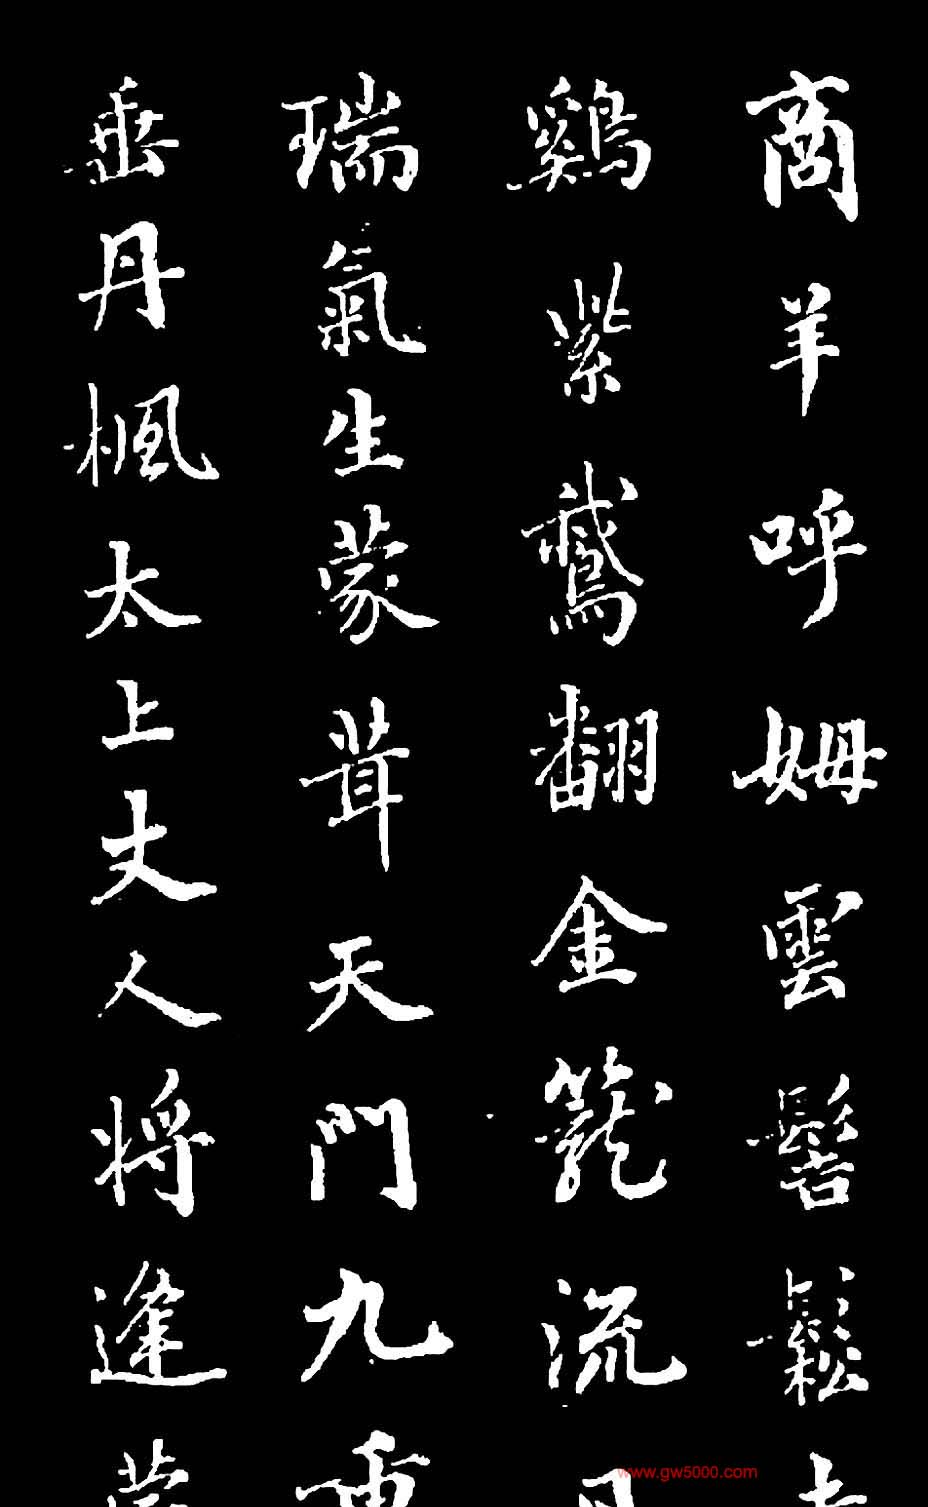 商羊呼姆雲髻鬆
鷄紫鸞翻金籠流
瑞氣生蒙茸天門九重
垂丹楓太上丈人將逢
www.gw5000.com